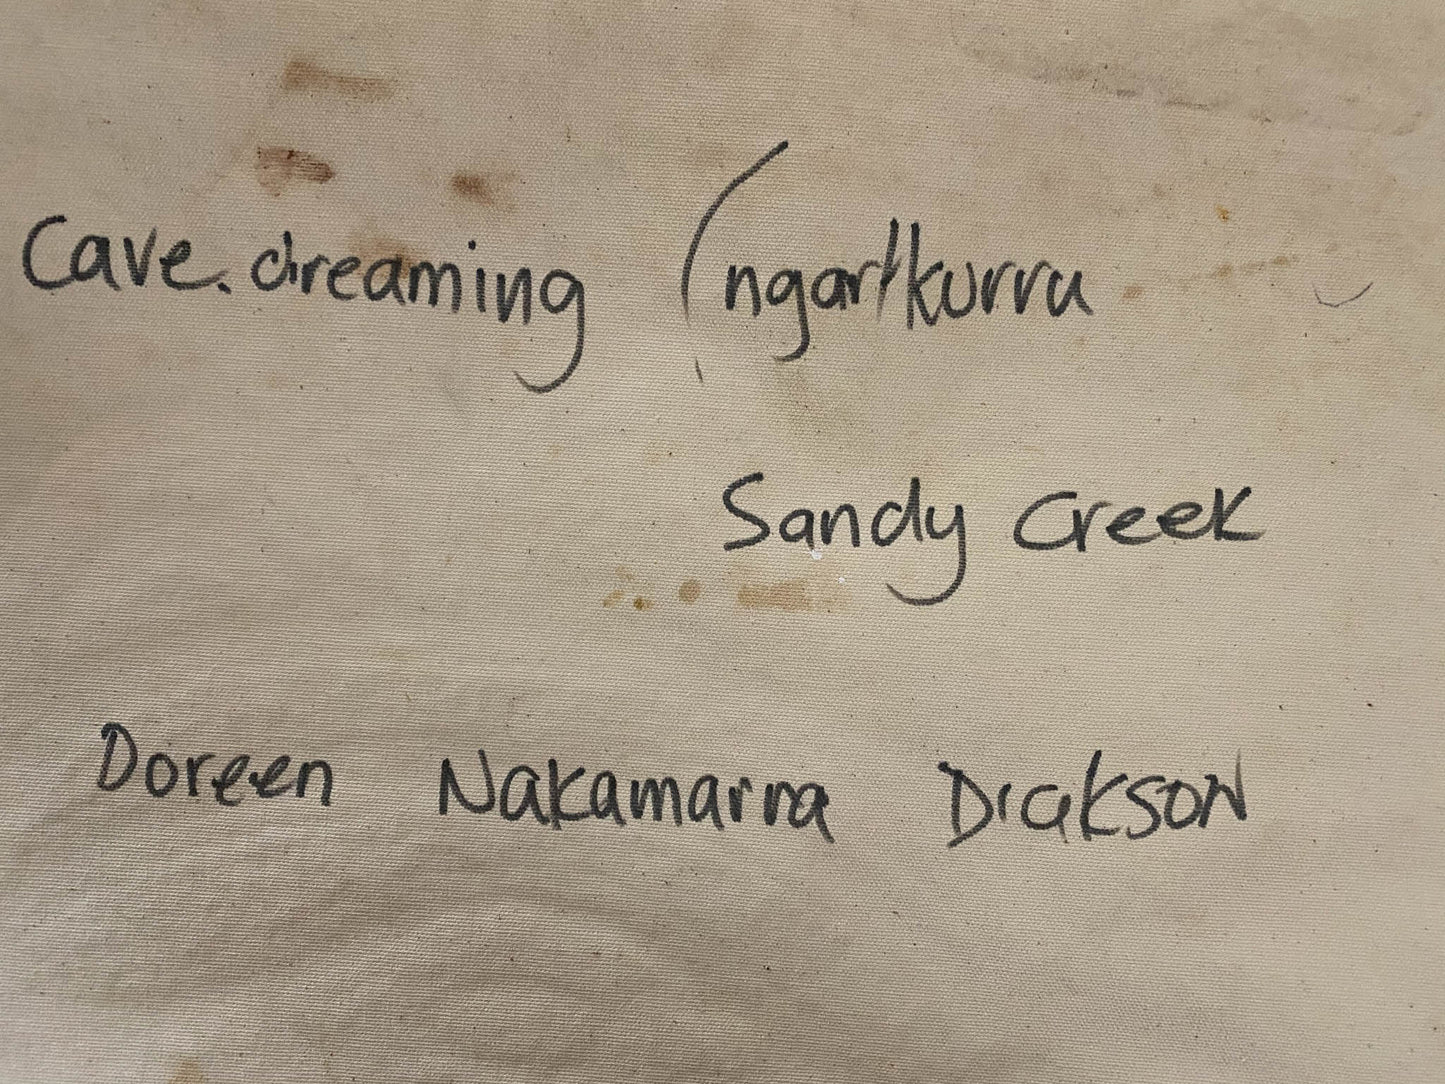 Cave. dreaming (ngartkurra
Sandy Creek
Doreen Nakamarra Dickson